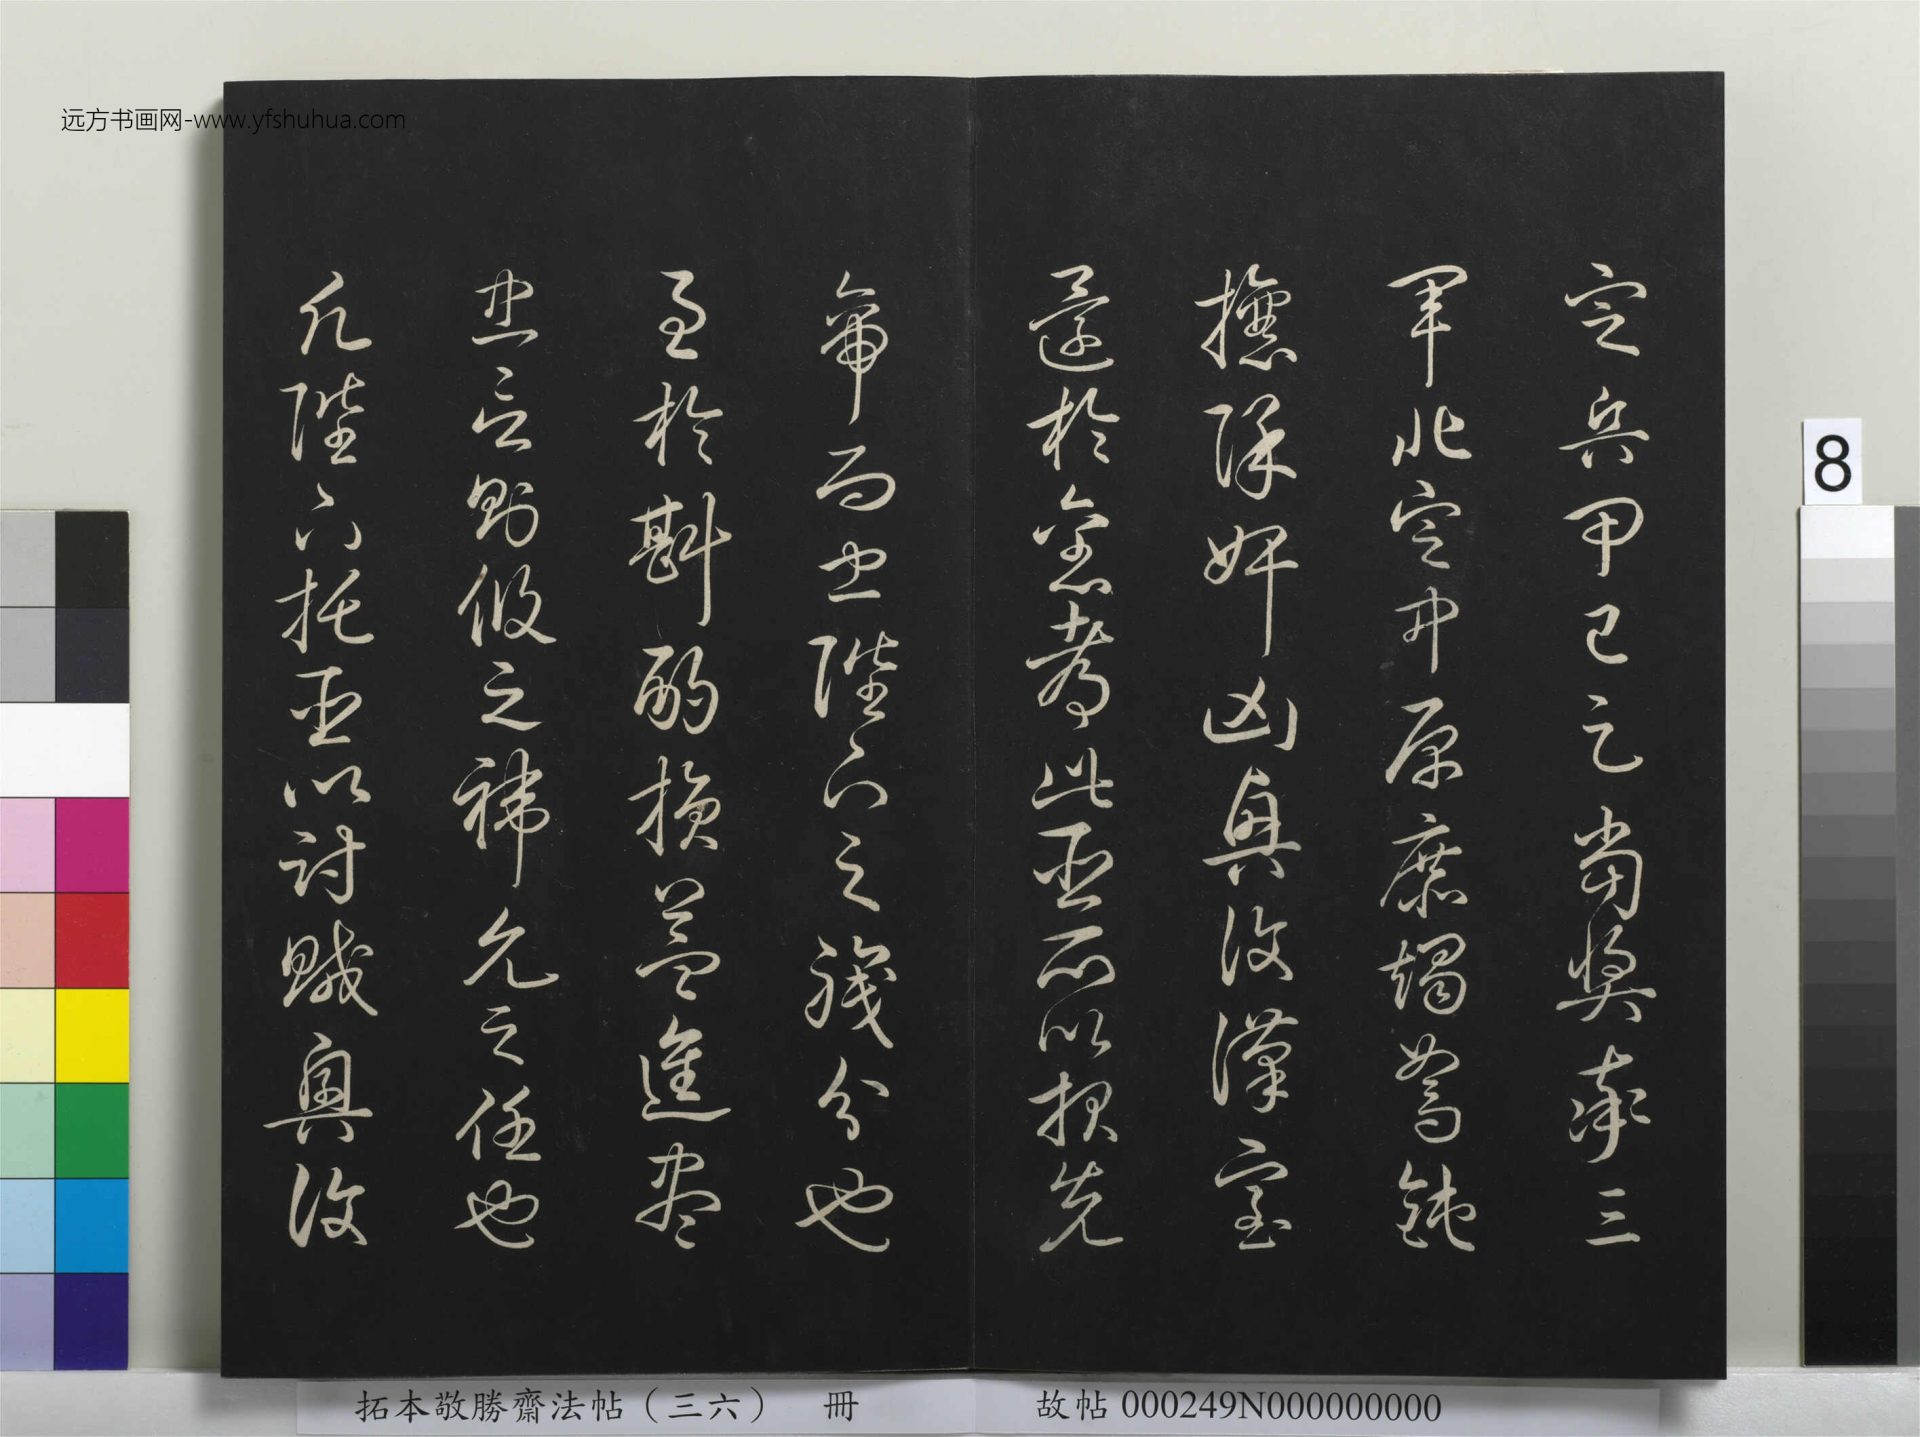 远方书画网-www.yfshuhua.com
定兵甲已足當獎率三
軍北定中原庶竭駑鈍
攘除奸凶興復漢室
還於舊都此臣所以報先
帝而忠陛下之職分也
至於斟酌損益進盡
忠言則攸之禕允之任也
願陛下托臣以討賊興復
8
拓本敬勝齋法帖（三六） 冊 故帖 000249N000000000